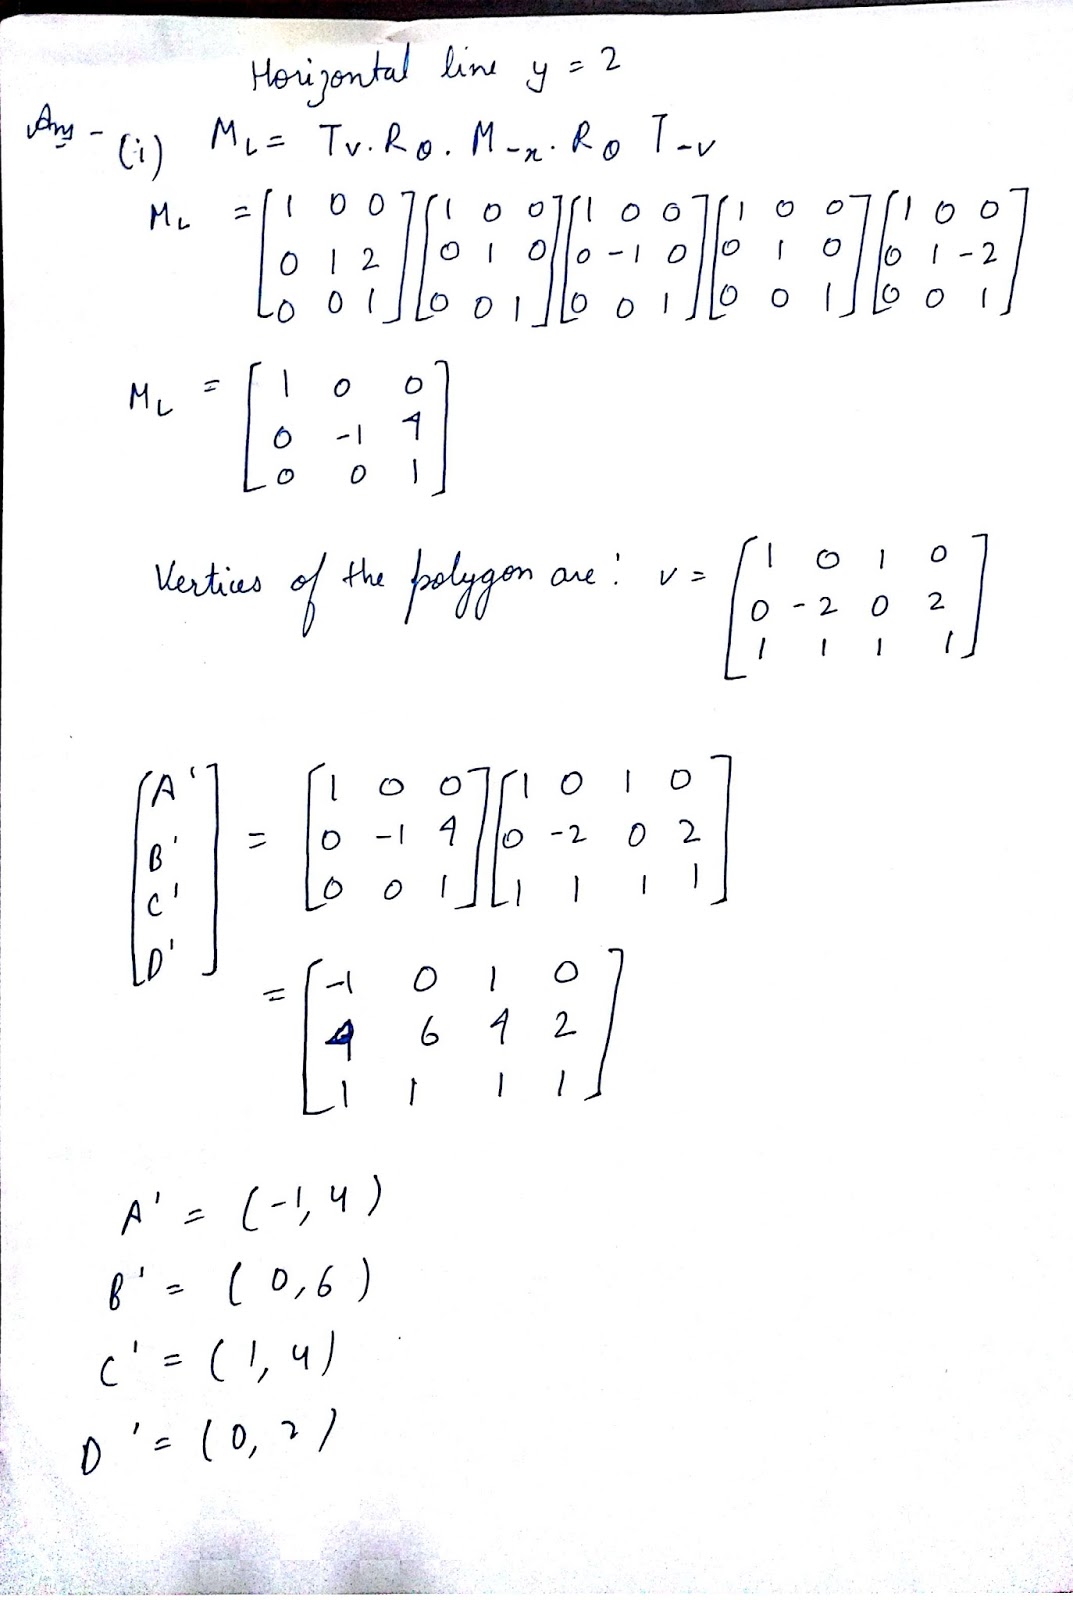 Horizontal line y = 2
Ans - (i) M_L = Tv. Rθ. M-x. Rθ T-v
M_L = [1 0 0] [1 0 0] [1 0 0] [1 0 0] [1 0 0]
[0 1 2] [0 1 0] [0 -1 0] [0 1 0] [0 1 -2]
[0 0 1] [0 0 1] [0 0 1] [0 0 1] [0 0 1]
M_L = [1 0 0]
[0 -1 4]
[0 0 1]
Vertices of the polygon are: v = [1 0 1 0]
[0 -2 0 2]
[1 1 1 1]
[A'] = [1 0 0] [1 0 1 0]
[B'] [0 -1 4] [0 -2 0 2]
[C'] [0 0 1] [1 1 1 1]
[D']
= [-1 0 1 0]
[4 6 4 2]
[1 1 1 1]
A' = (-1, 4)
B' = (0, 6)
C' = (1, 4)
D' = (0, 2)